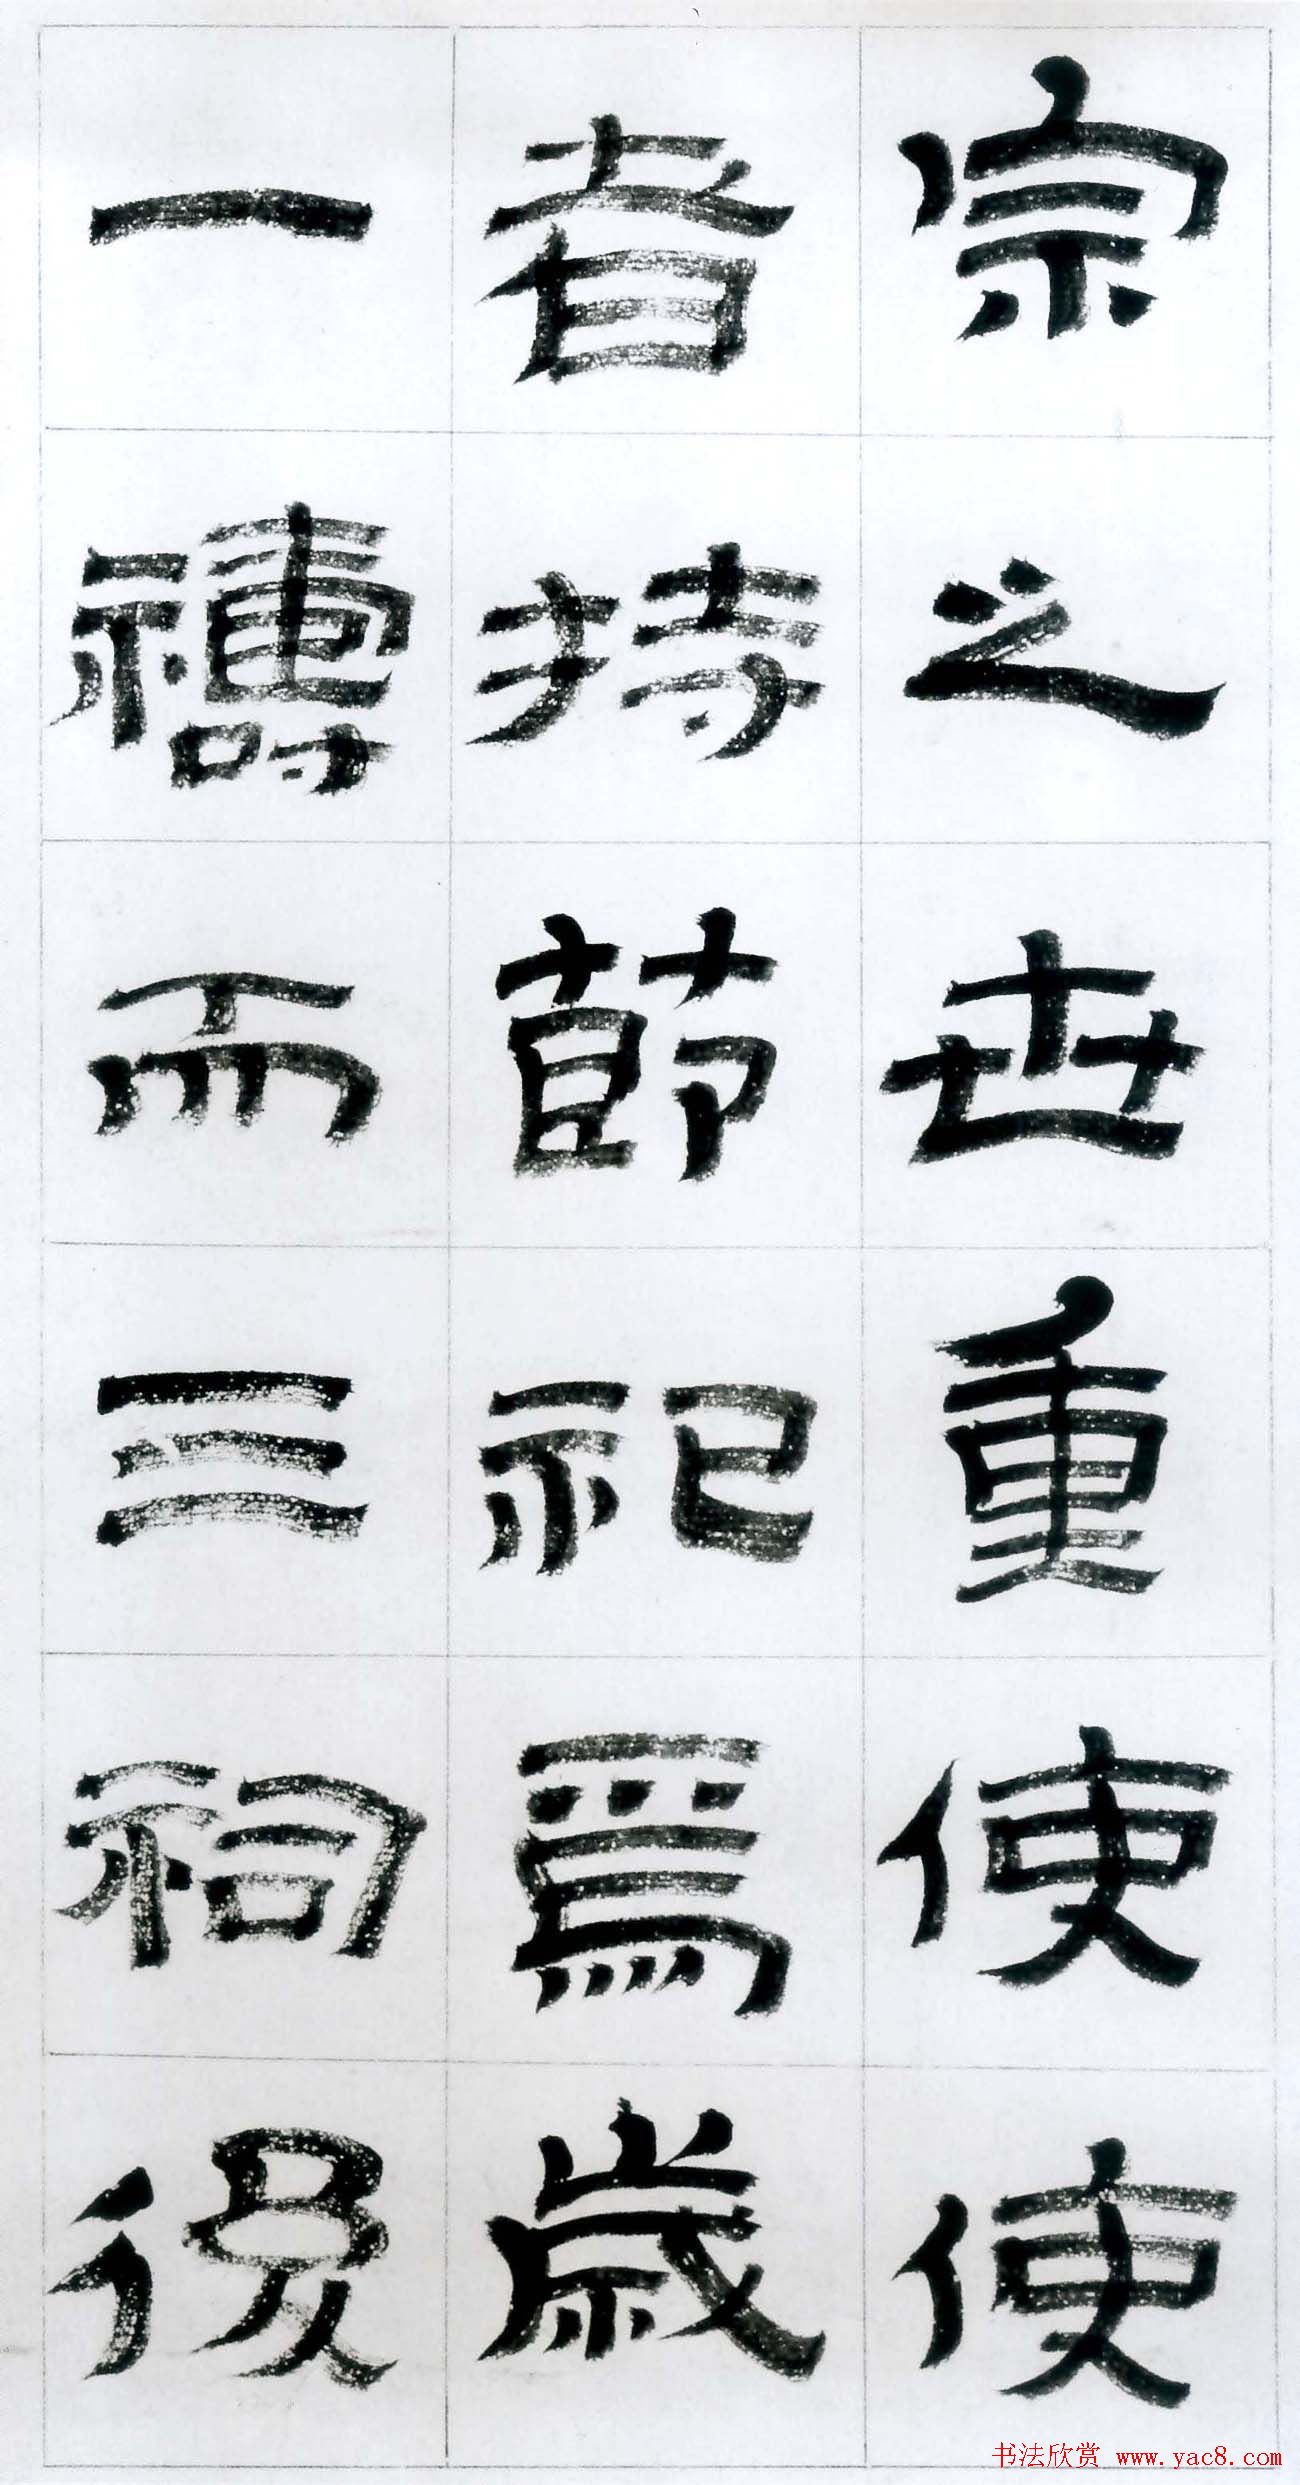 宗之世重使使
者持節祀焉歲
一禱而三祠後
书法欣赏 www.yac8.com